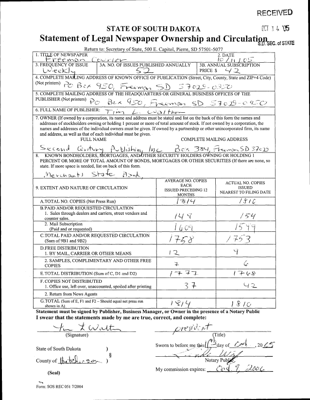 RECEIVED
STATE OF SOUTH DAKOTA
Statement of Legal Newspaper Ownership and Circulation
S.D. SEC. of STATE
Return to: Secretary of State, 500 E. Capitol, Pierre, SD 57501-5077
1. TITLE OF NEWSPAPER
2. DATE
Freeman Courier
3. FREQUENCY OF ISSUE
3A. NO. OF ISSUES PUBLISHED ANNUALLY
3B. ANNUAL SUBSCRIPTION
Weekly
52
PRICE $ 42
4. COMPLETE MAILING ADDRESS OF KNOWN OFFICE OF PUBLICATION (Street, City, County, State and ZIP+4 Code)
(Not printers) PO Box 950, Freeman, SD 57029-0950
5. COMPLETE MAILING ADDRESS OF THE HEADQUARTERS OR GENERAL BUSINESS OFFICES OF THE
PUBLISHER (Not printers) PO Box 950, Freeman SD 57029-0950
6. FULL NAME OF PUBLISHER: Tim L. Waltner
7. OWNER (If owned by a corporation, its name and address must be stated and list on the back of this form the names and
addresses of stockholders owning or holding 1 percent or more of total amount of stock. If not owned by a corporation, the
names and addresses of the individual owners must be given. If owned by a partnership or other unincorporated firm, its name
and address, as well as that of each individual must be given.)
FULL NAME
COMPLETE MAILING ADDRESS
Second Century Publishing, Inc. Box 950, Freeman SD 57029
8. KNOWN BONDHOLDERS, MORTGAGES, AND OTHER SECURITY HOLDERS OWNING OR HOLDING 1
PERCENT OR MORE OF TOTAL AMOUNT OF BONDS, MORTGAGES OR OTHER SECURITIES (If there are none, so
state. If more space is needed, list on back of this form.
Merchants State Bank
9. EXTENT AND NATURE OF CIRCULATION
AVERAGE NO. COPIES
EACH
ISSUED PRECEDING 12
MONTHS
ACTUAL NO. COPIES
ISSUED
NEAREST TO FILING DATE
A. TOTAL NO. COPIES (Net Press Run)
1814
1816
B. PAID AND/OR REQUESTED CIRCULATION
1. Sales through dealers and carriers, street vendors and
counter sales.
149
154
2. Mail Subscription
(Paid and or requested)
1609
1599
C. TOTAL PAID AND/OR REQUESTED CIRCULATION
(Sum of 9B1 and 9B2)
1758
1753
D. FREE DISTRIBUTION
1. BY MAIL, CARRIER OR OTHER MEANS
12
9
2. SAMPLES, COMPLIMENTARY AND OTHER FREE
COPIES
7
6
E. TOTAL DISTRIBUTION (Sum of C, D1 and D2)
1777
1768
F. COPIES NOT DISTRIBUTED
1. Office use, left over, unaccounted, spoiled after printing
37
42
2. Return from News Agents
G. TOTAL (Sum of E, F1 and F2 - Should equal net press run
shown in A)
1814
1810
Statement must be signed by Publisher, Business Manager, or Owner in the presence of a Notary Public
I swear that the statements made by me are true, correct, and complete:
Tim L Waltner
president
(Title)
State of South Dakota )
) §
County of Hutchinson )
Sworn to before me this day of Oct, 2005
Notary Public
(Seal)
My commission expires: Oct. 9, 2006
Form: SOS REC 051 7/2004